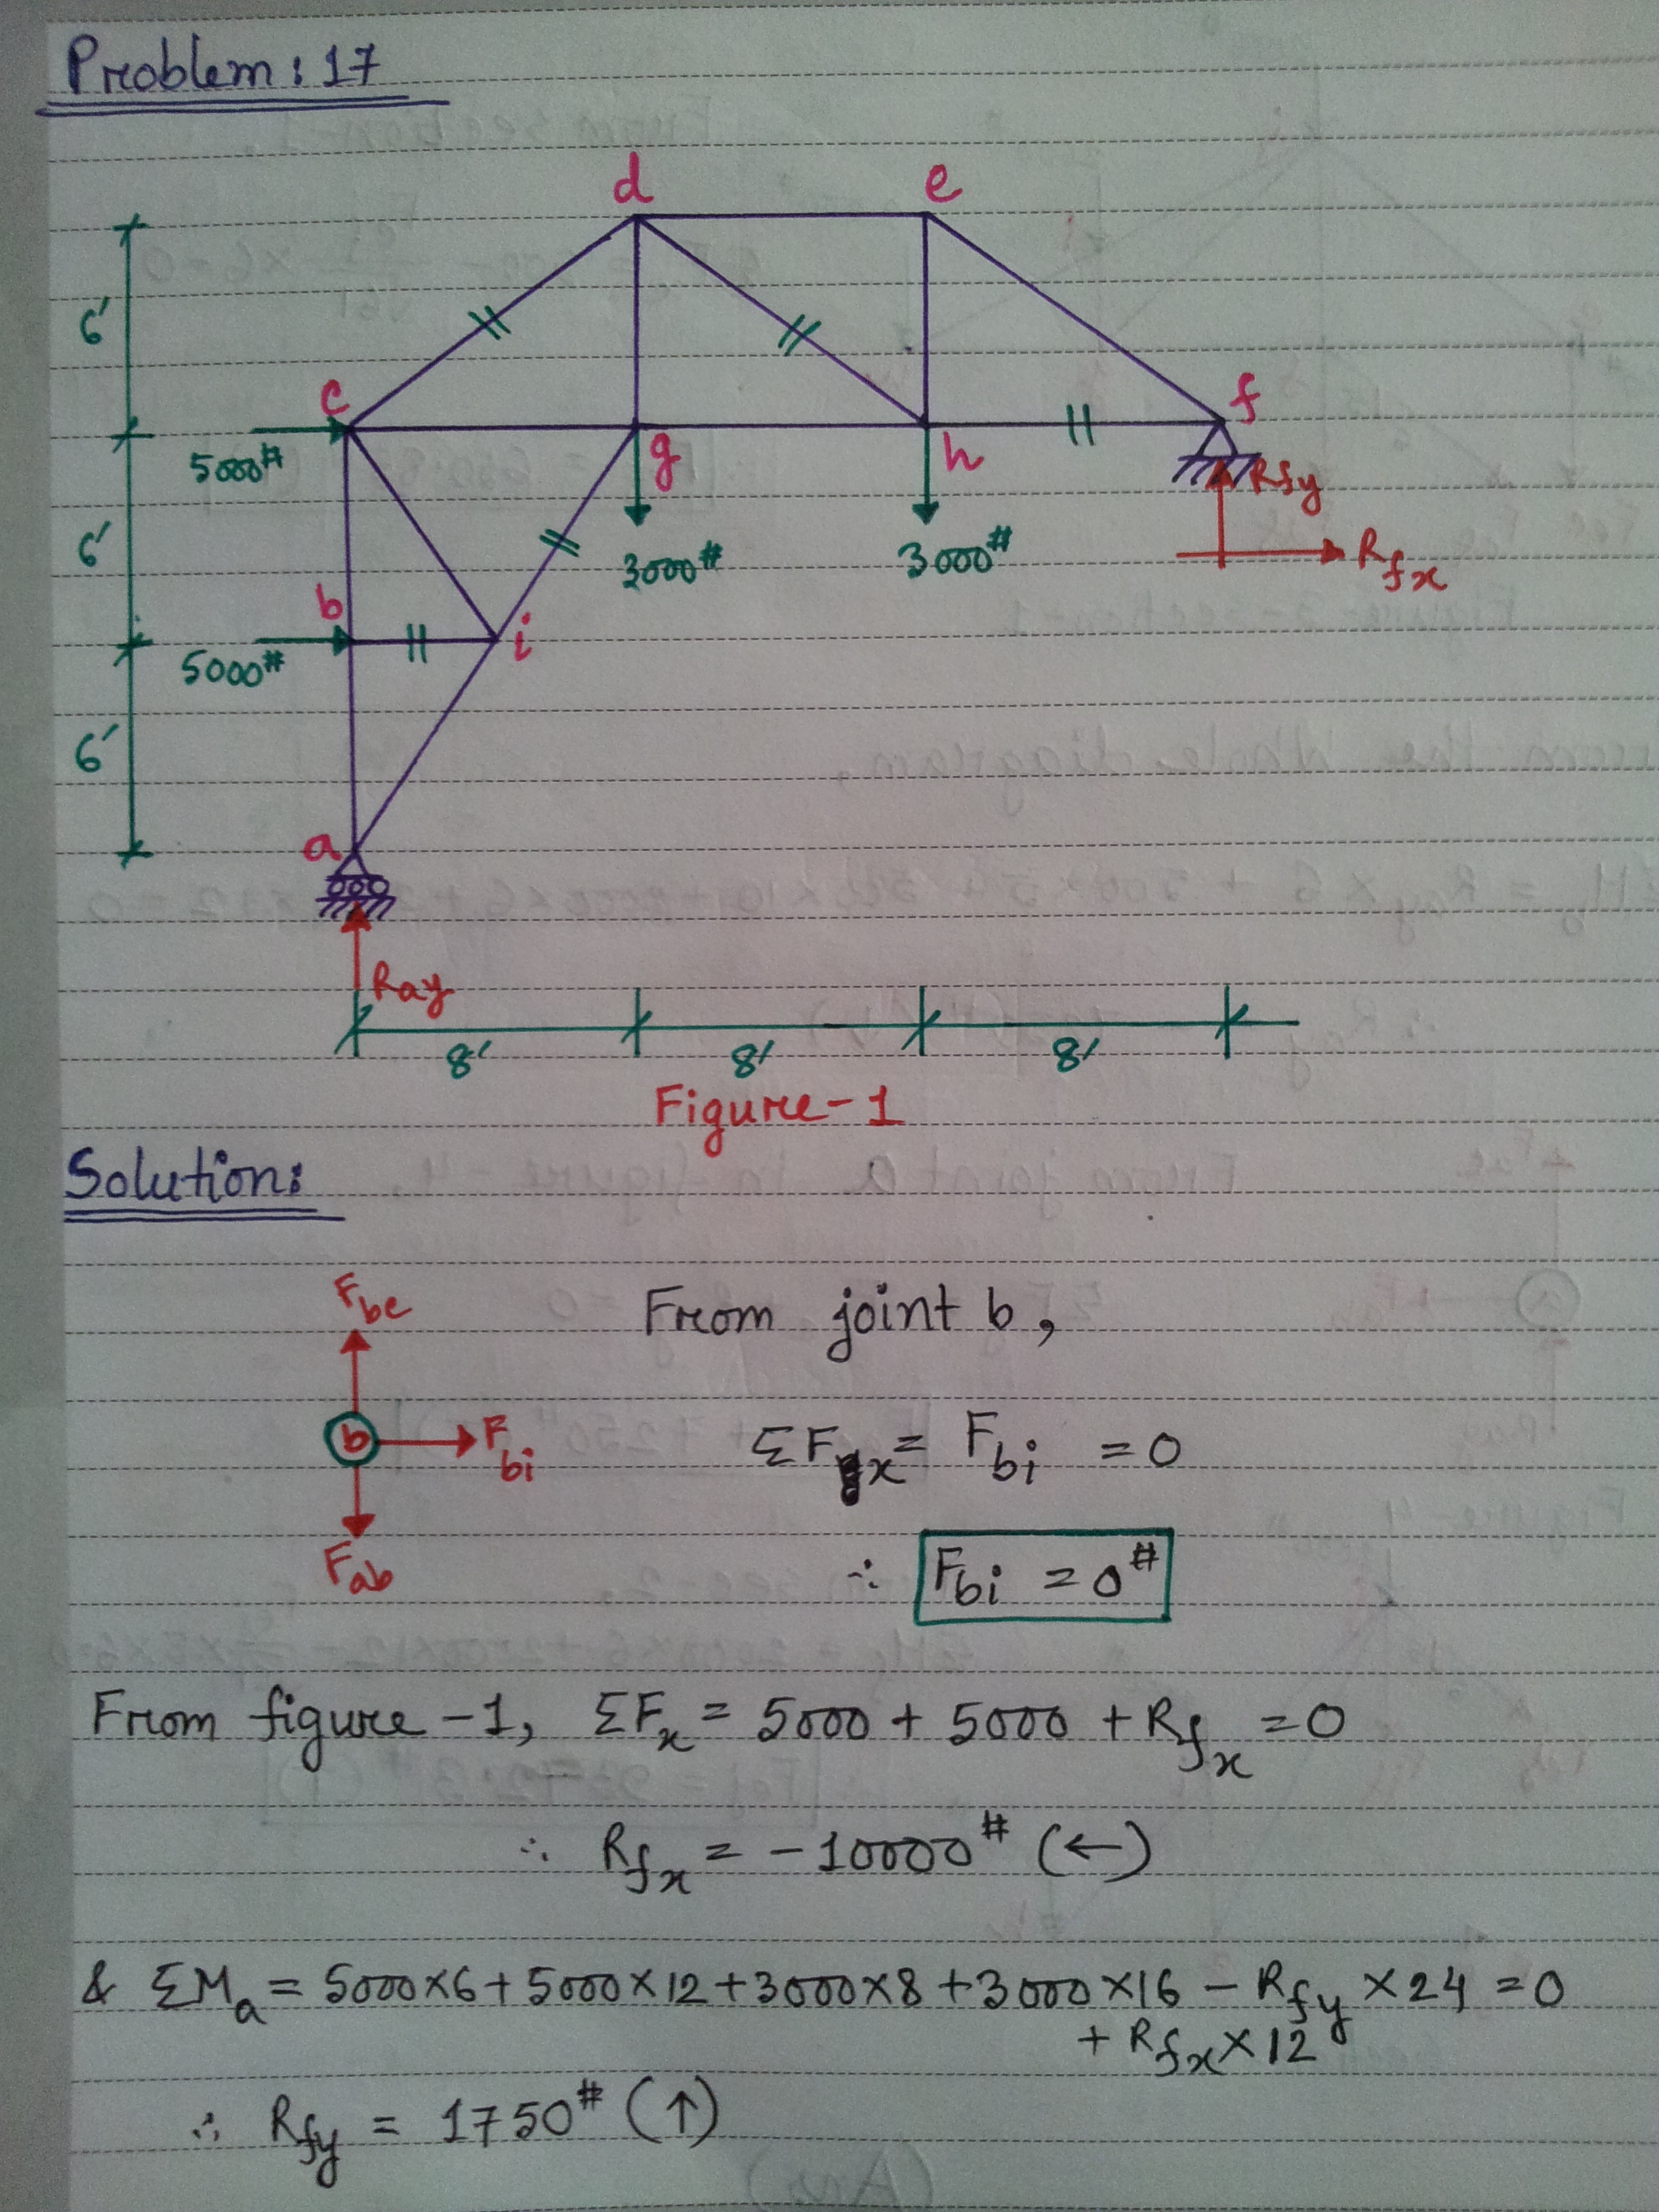 Problem: 17
d
e
6'
c
f
5000#
g
h
Rfy
3000#
3000#
Rfx
6'
b
i
5000#
6'
a
Ray
8'
8'
8'
Figure-1
Solution:
Fbc
From joint b,
b
Fbi
ΣFx = Fbi = 0
Fab
∴ Fbi = 0#
From figure-1, ΣFx = 5000 + 5000 + Rfx = 0
∴ Rfx = -10000# (←)
& ΣMa = 5000×6 + 5000×12 + 3000×8 + 3000×16 - Rfy×24 = 0
+ Rfx×12
∴ Rfy = 1750# (↑)